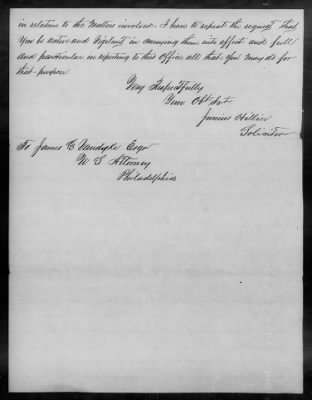 in relation to the Matters involved. I have to repeat the request that
You be active and Vigilant in carrying them into effect and full
and particular in reporting to this Office all that You may do for
that purpose
Very Respectfully
Your Obt Svt
Junius Hillyer
Solicitor
To James C Vandyke Esqr
U S Attorney
Philadelphia